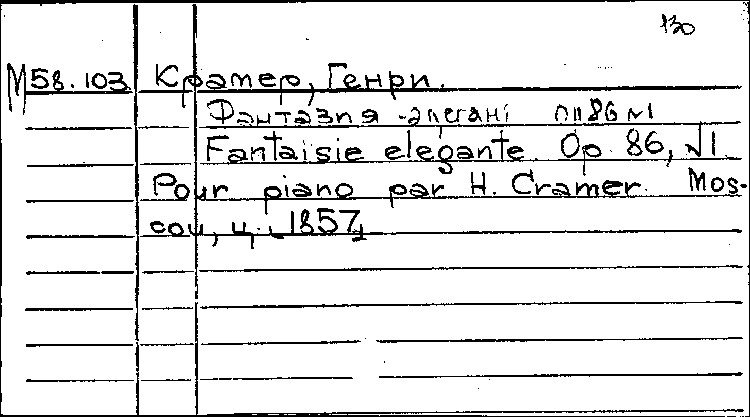 130
М58.103 Крамер, Генри.
Фантазия -элегант оп 86 №1
Fantaisie elegante. Op. 86, №1
Pour piano par H. Cramer. Mos-
cou, ц. [1857]